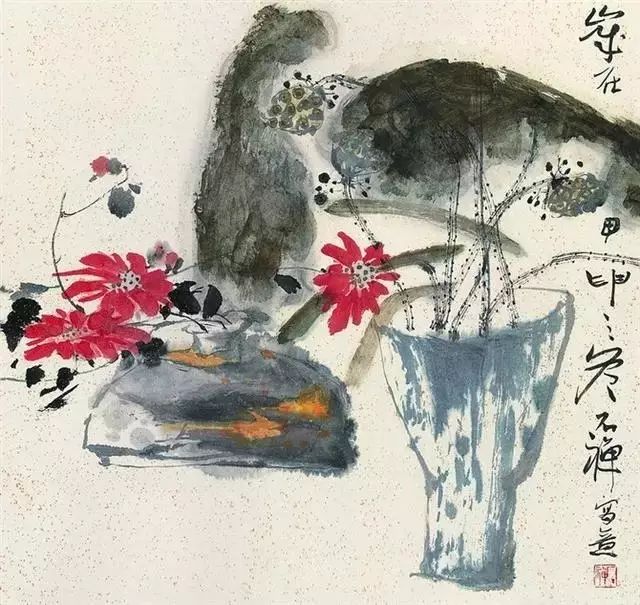 岁在甲申之冬石禅写意